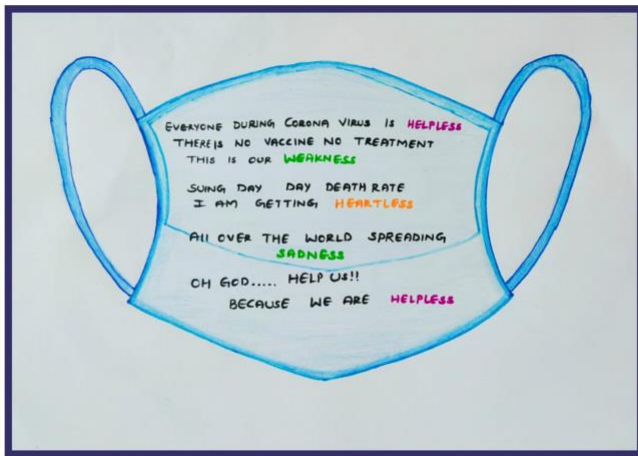 EVERYONE DURING CORONA VIRUS IS HELPLESS
THERE IS NO VACCINE NO TREATMENT
THIS IS OUR WEAKNESS
SUING DAY DAY DEATH RATE
I AM GETTING HEARTLESS
All OVER THE WORLD SPREADING
SADNESS
OH GOD..... HELP US!!
BECAUSE WE ARE HELPLESS